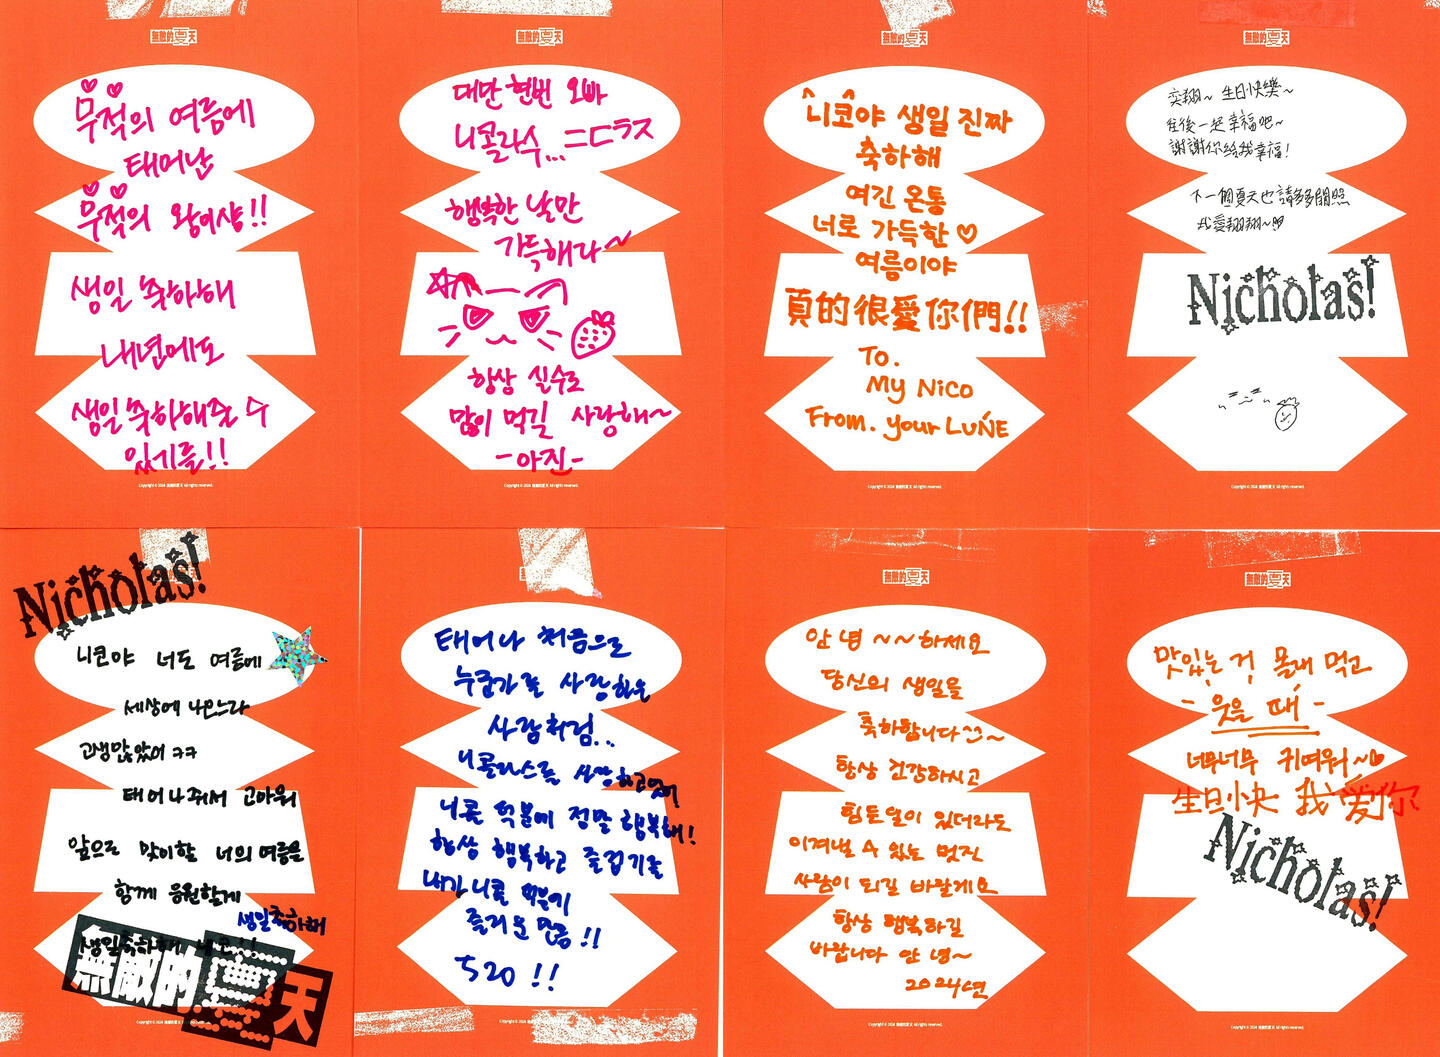 無敵的夏天
무적의 여름에
태어난
무적의 왕이샹!!
생일 축하해
내년에도
생일 축하해줄 수
있기를!!
Copyright © 2024 無敵的夏天 All rights reserved.
無敵的夏天
대만 현번 오빠
니콜라수... ニコラス
행복한 날만
가득해라~
항상 실수로
많이 먹길 사랑해~
-아진-
Copyright © 2024 無敵的夏天 All rights reserved.
無敵的夏天
니코야 생일 진짜
축하해
여긴 온통
너로 가득한 ♡
여름이야
真的很愛你們!!
To.
My Nico
From. your LUNÉ
Copyright © 2024 無敵的夏天 All rights reserved.
無敵的夏天
奕翔~ 生日快樂~
往後一起幸福吧~
謝謝你給我幸福!
下一個夏天也請多多關照
我愛翔翔~♥
Nicholas!
Copyright © 2024 無敵的夏天 All rights reserved.
Nicholas!
니코야 너도 여름에
세상에 나오느라
고생많았어 ㅋㅋ
태어나줘서 고마워
앞으로 맞이할 너의 여름을
함께 응원할게
생일축하해
생일축하해 니코!!
無敵的夏天
Copyright © 2024 無敵的夏天 All rights reserved.
無敵的夏天
태어나 처음으로
누군가를 사랑하는
사람처럼...
니콜라스를 사랑하고있어
니콜 덕분에 정말 행복해!
항상 행복하고 즐겁기를
내가 니콜 덕분에
즐거운 만큼!!
520!!
Copyright © 2024 無敵的夏天 All rights reserved.
無敵的夏天
안녕~~하세요
당신의 생일을
축하합니다~
항상 건강하시고
힘든일이 있더라도
이겨낼 수 있는 멋진
사람이 되길 바랄게요
항상 행복하길
바랍니다 안녕~
2024년
Copyright © 2024 無敵的夏天 All rights reserved.
無敵的夏天
맛있는 거 몰래 먹고
- 웃을 때 -
너무너무 귀여워~♡
生日快 我愛你
Nicholas!
Copyright © 2024 無敵的夏天 All rights reserved.